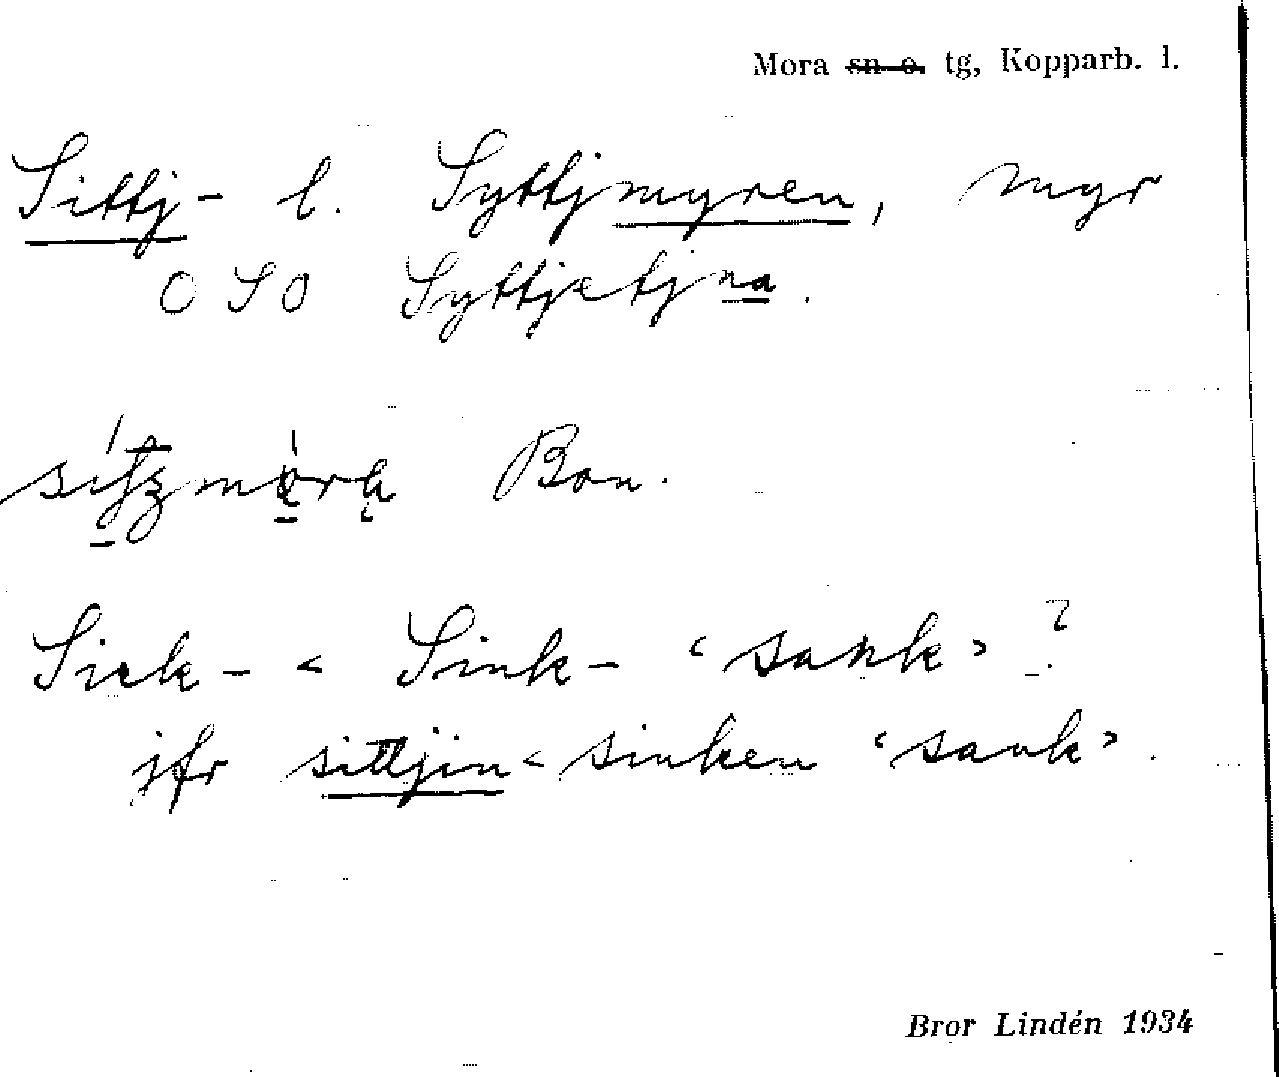 Mora sn o. tg, Kopparb. l.
Sittj- l. Syttjmyren, myr
OSO Syttjetjna.
Bon.
Sick- < Sink- 'sank' ?
jfr sittjin < sinken 'sank'.
Bror Lindén 1934